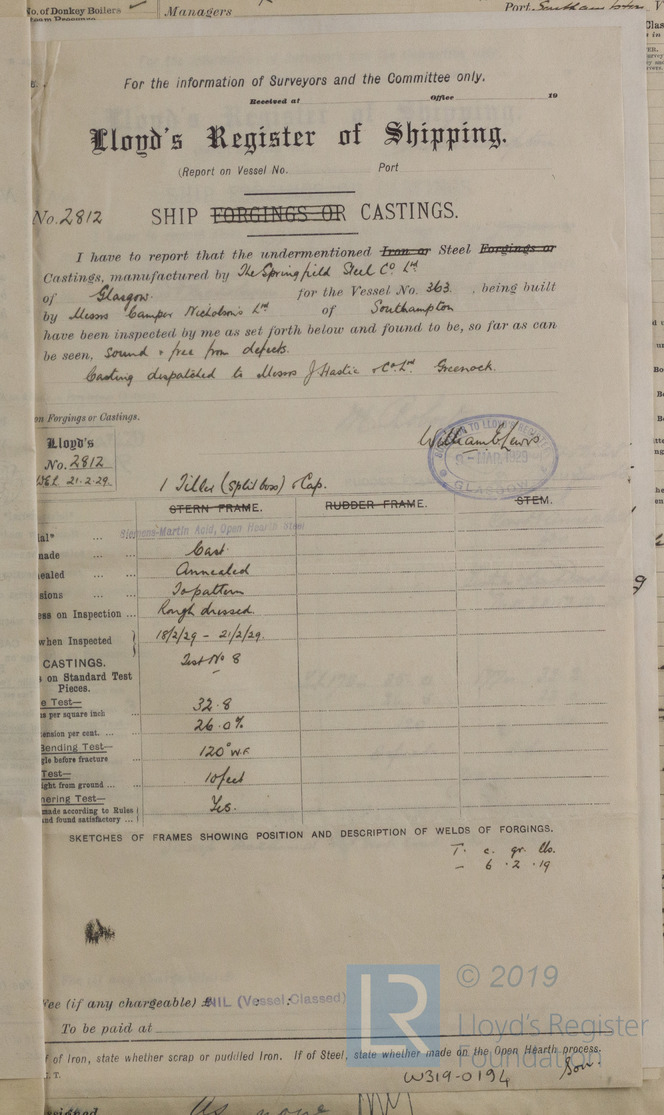 No. of Donkey Boilers
Managers
Port Southampton
For the information of Surveyors and the Committee only.
Received at Office 19
Lloyd's Register of Shipping.
(Report on Vessel No. Port
No. 2812 SHIP FORGINGS OR CASTINGS.
I have to report that the undermentioned Iron or Steel Forgings or
Castings, manufactured by The Springfield Steel Co Ld
of Glasgow for the Vessel No. 363 , being built
by Messrs Camper Nicholsons Ld of Southampton
have been inspected by me as set forth below and found to be, so far as can
be seen, sound & free from defects.
Casting dispatched to Messrs J Hastie & Co. Ld Greenock.
on Forgings or Castings.
Lloyd's
No. 2812
WEL 21.2.29
William E Lewis
TO LLOYD'S REGISTER
9-MAR.1929
GLASGOW
1 Tiller (split boss) & Cap.
STERN FRAME. RUDDER FRAME. STEM.
ial" ... Siemens-Martin Acid, Open Hearth Steel
made ... ... Cast.
ealed ... ... Annealed
sions ... ... To pattern
ess on Inspection ... Rough dressed.
when Inspected 18/2/29 - 21/2/29.
CASTINGS. Test No 8
on Standard Test
Pieces.
e Test—
s per square inch 32.8
ension per cent. ... 26.0%
Bending Test—
gle before fracture ... 120° W.F.
Test—
ight from ground ... 10 feet
mering Test—
made according to Rules
and found satisfactory ... Yes.
SKETCHES OF FRAMES SHOWING POSITION AND DESCRIPTION OF WELDS OF FORGINGS.
T. c. qr. lbs.
– 6 . 2 . 19
Fee (if any chargeable) £ NIL (Vessel Classed)
To be paid at
f of Iron, state whether scrap or puddled Iron. If of Steel, state whether made on the Open Hearth process.
W319-0194
LR
© 2019
Lloyd's Register
Foundation